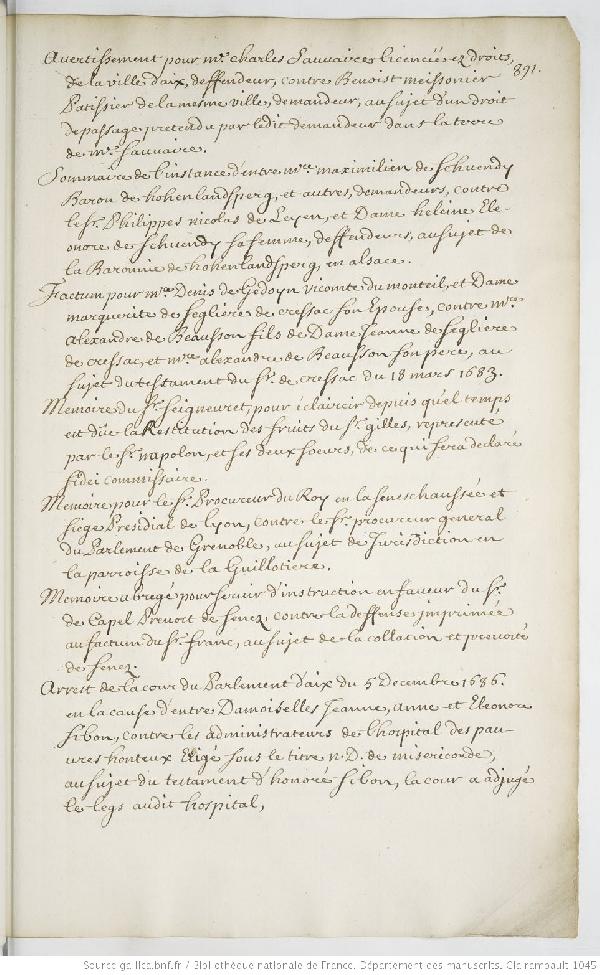 Avertissement pour mre. Charles Sauvaires licencié ez droits,
891.
de la ville d'aix, deffendeur, contre Benoist meissonier
Patissier de la mesme ville, demandeur, au sujet d'un droit
de passage pretendu par ledit demandeur dans la terre
de mr. Sauvaire.
Sommaire de l'instance d'entre mre maximilien de Schuendy
Baron de hohenlandsperg, et autres, demandeurs, contre
le sr. Philippes nicolas de Leyen, et Dame heleine Ele-
onore de Schuendy sa femme, deffendeurs, au sujet de
la Baronnie de hohenlandsperg, en alsace.
Factum pour mre Denis de Gedoyn vicomte du monteil, et Dame
marguerite de segliere de cressac son Epouse, contre mre
alexandre de Beausson fils de Dame Jeanne de segliere
de cressac, et mre alexandre de Beausson son pere, au
sujet du testament du sr. de cressac du 18 mars 1683.
Memoire du sr. seigneuret, pour éclaircir depuis quel temps
est düe la Restitution des fruits du sr. gilles, representé
par le sr. napolon, et ses deux soeurs, de ce qui sera declaré
fidei commissaire.
Memoire pour le sr. Procureur du Roy en la seneschaussée et
siege Presidial de Lyon, contre le sr. procureur general
du Parlement de Grenoble, au sujet de Jurisdiction en
la parroisse de la Guillotiere.
Memoire abregé pour servir d'instruction en faveur du sr.
de Capel Prevost de senez, contre la deffense imprimée
au factum du sr. franc, au sujet de la collation et prevoté
de senez.
Arrest de la cour du Parlement d'aix du 5 Decembre 1686.
en la cause d'entre Damoiselles Jeanne, anne et Eleonore
sibon, contre les administrateurs de l'hospital des pau-
vres honteux Erigé sous le titre n. D. de misericorde,
au sujet du testament d'honoré sibon, la cour a adjugé
le legs audit hospital,
Source gallica.bnf.fr / Bibliothèque nationale de France. Département des manuscrits. Clairambault 1045